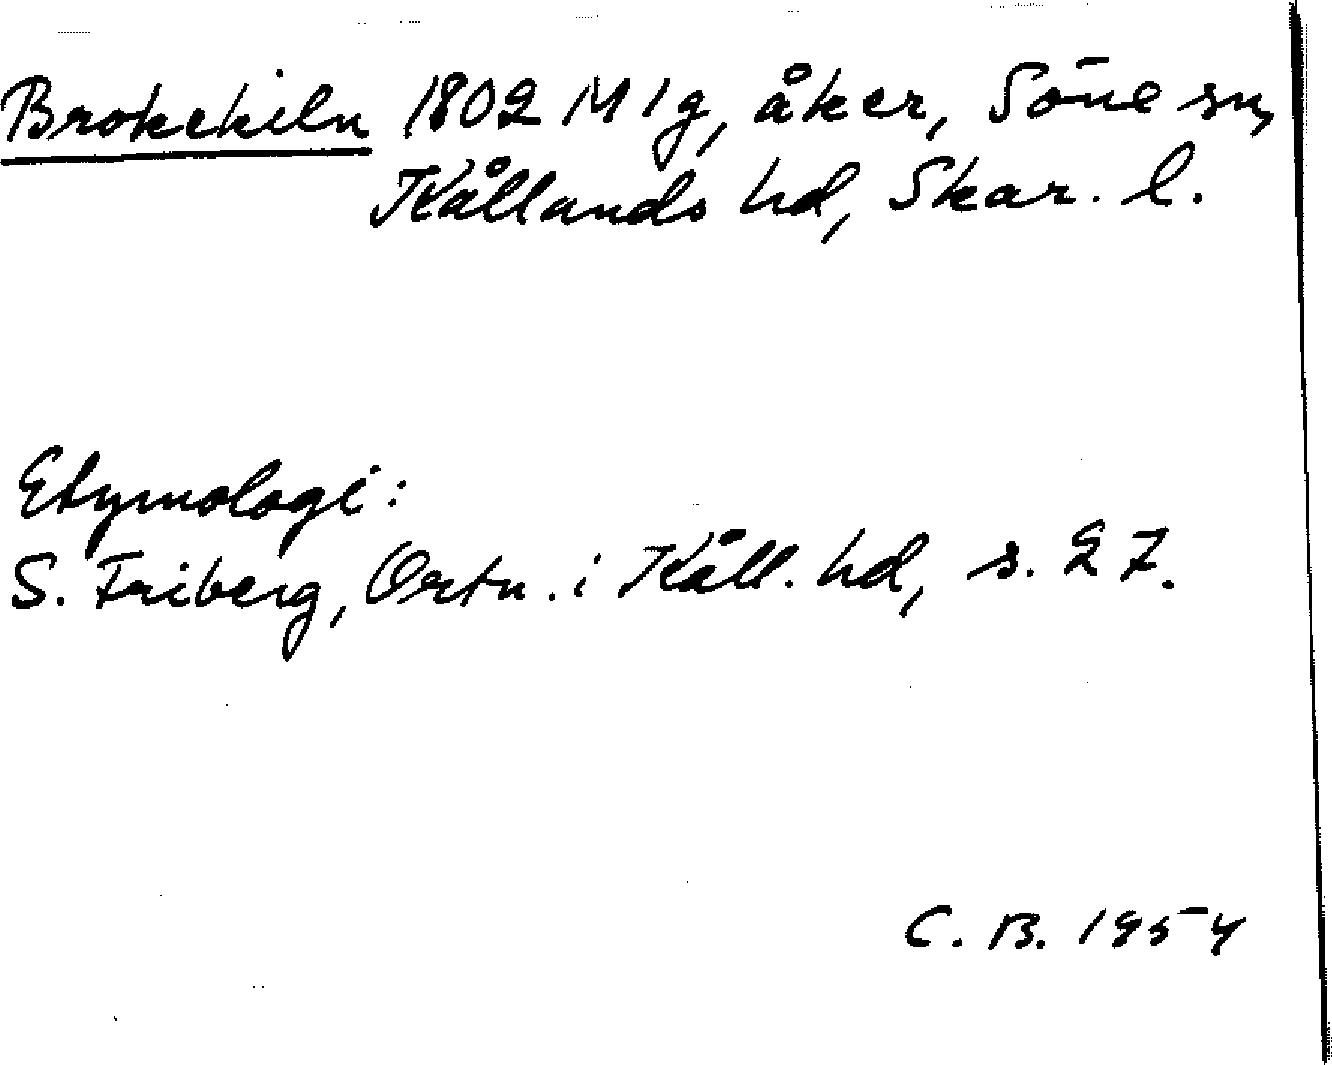 Brokekiln 1802 M 1g, åker, Söne sn,
Kållands hd, Skar. l.
Etymologi:
S. Friberg, Ortn. i Kåll. hd, s. 27.
C. B. 1954